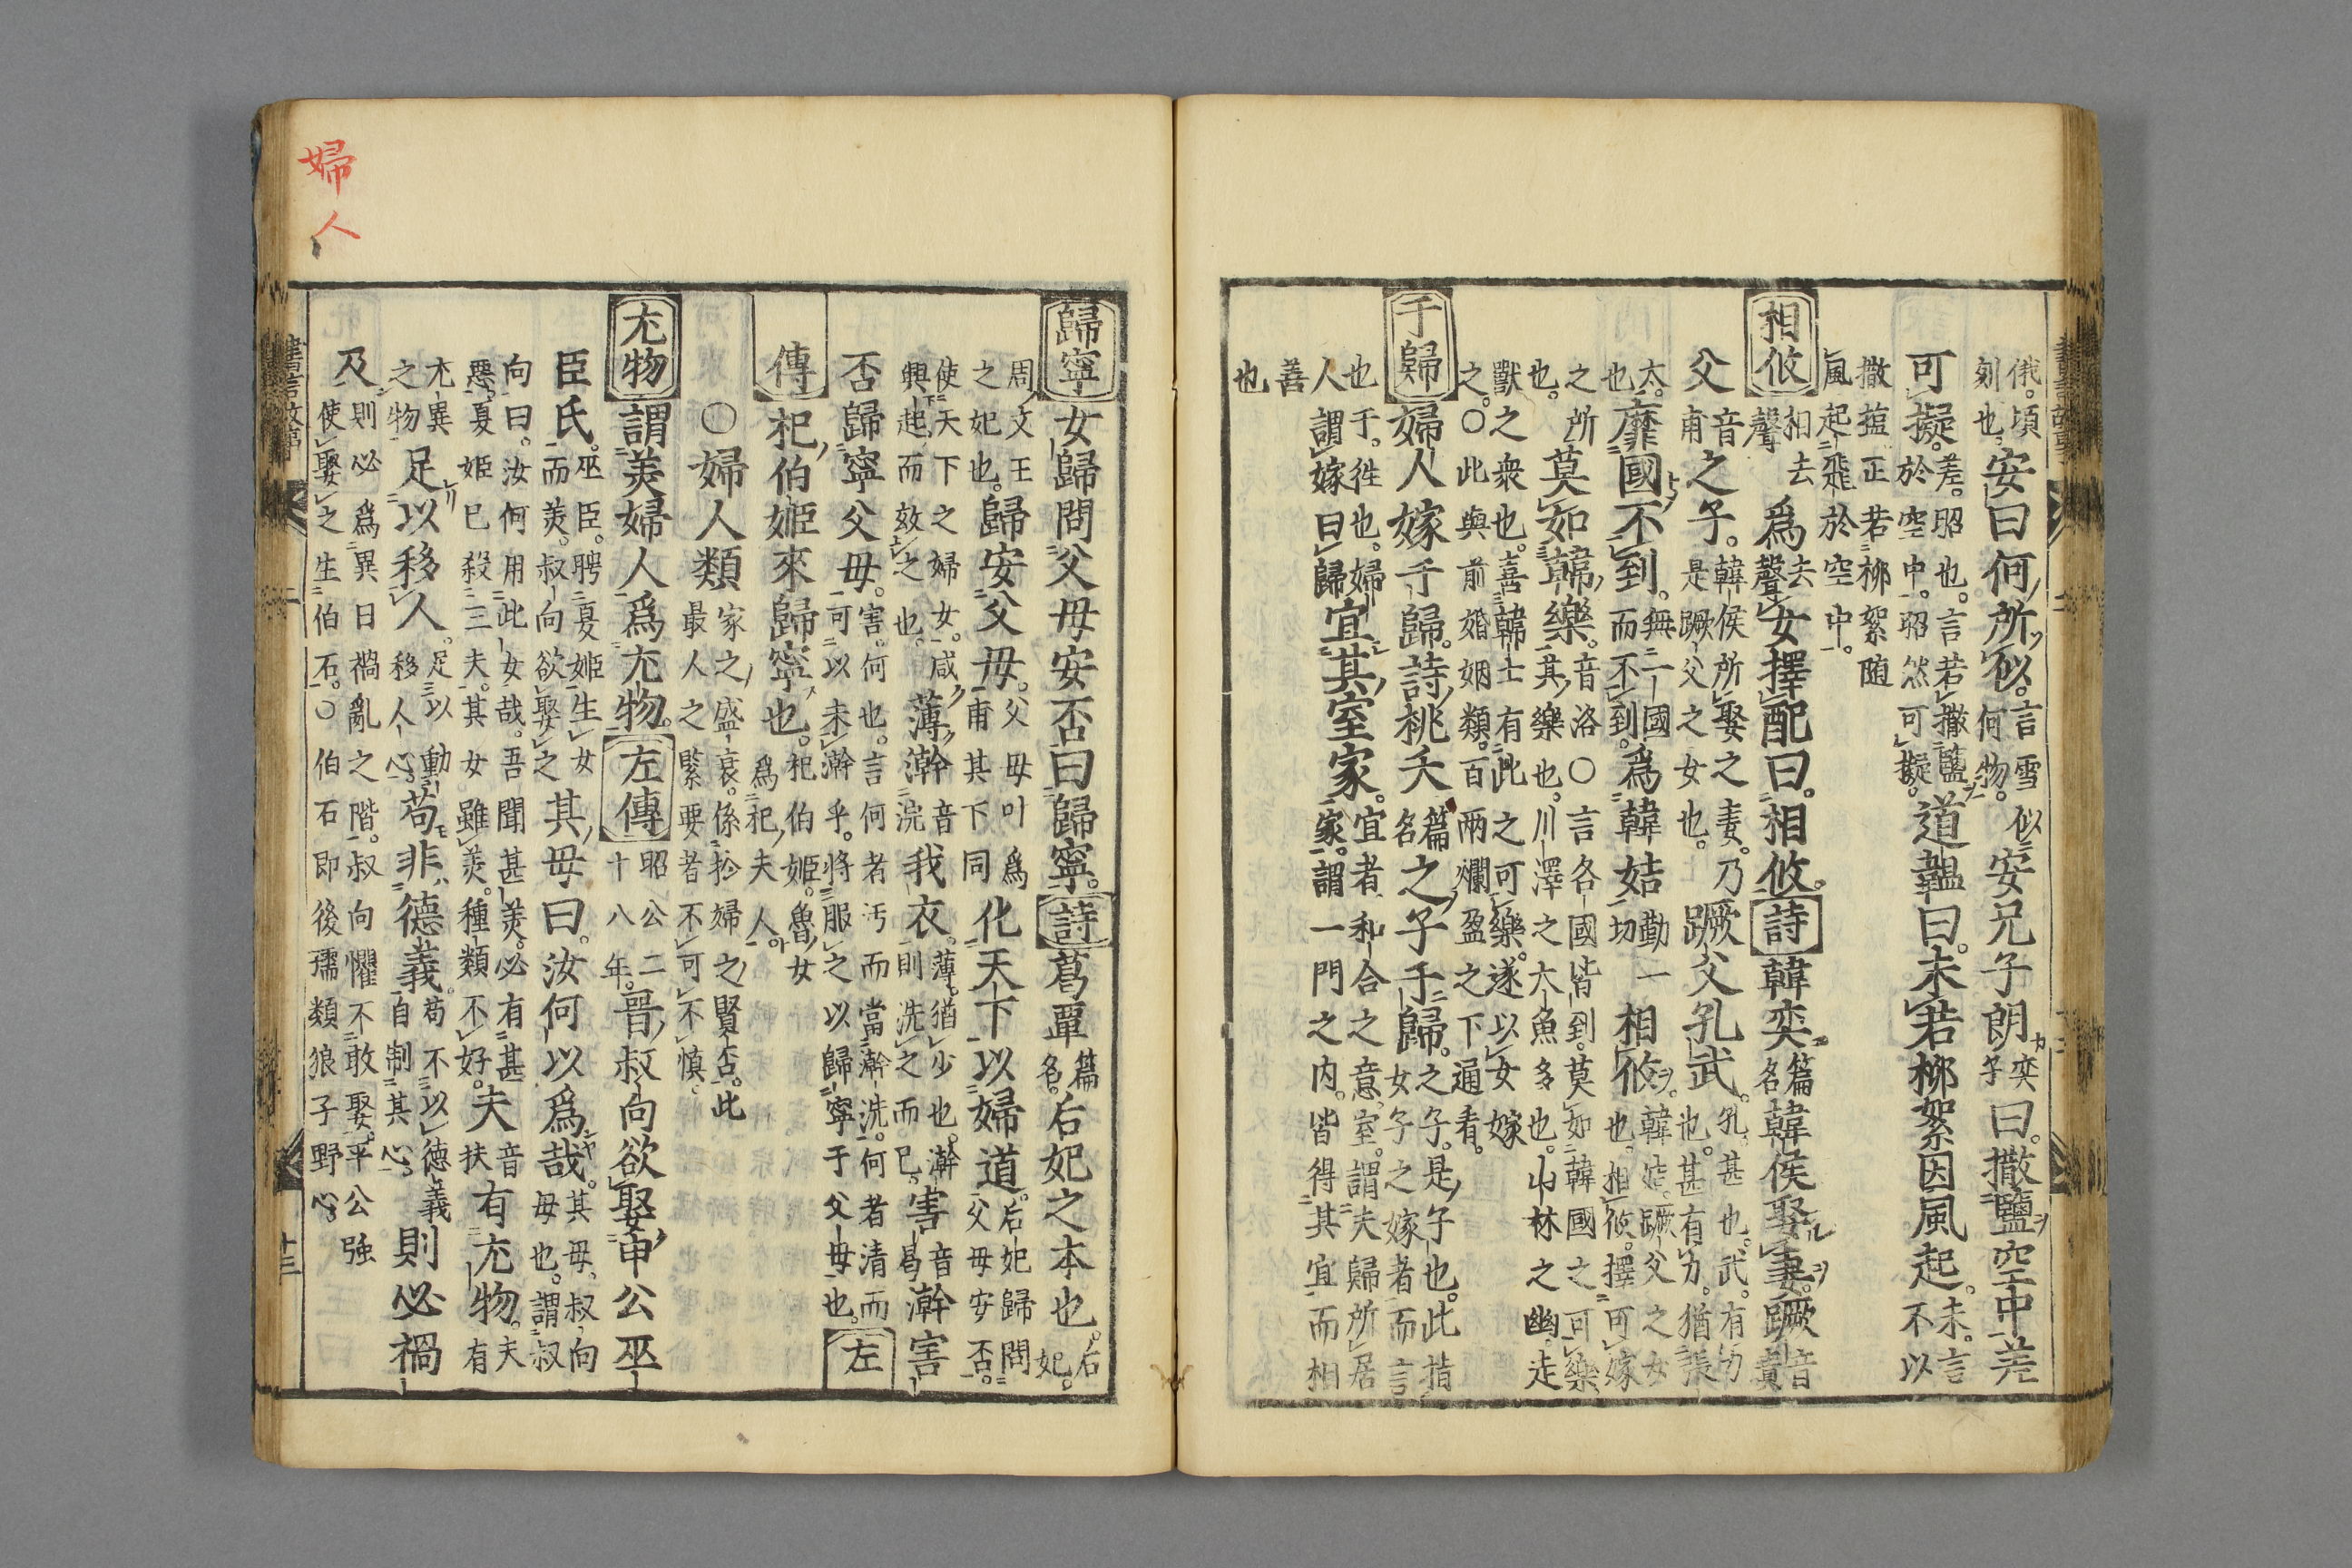 俄。頃
刻也
安曰何所似。
言雪似
何物。
安兄子朗
奕子
曰。撒鹽空中差
可擬。
差。昭也。言若撒鹽
於空中。昭然可擬。
道韞曰。未若柳絮因風起。
未。言
不以
撒搵正若柳絮随
風起飛於空中。
相攸
相去
聲
爲
去
聲
女擇配曰。相攸。
詩
韓奕
篇
名
韓侯娶妻。蹶
音
貴
父
音
甫
之子。
韓侯所娶之妻。乃
是蹶父之女也。
蹶父孔武。
孔甚也。武。有力
也。甚有力。猶張
太。
也
靡國不到。
無一國
而不到。
爲韓姞
勤一
切
相攸。
韓姞。蹶父之女
也。相攸。擇可嫁
之所
也。
莫如韓樂。
音洛〇言各國皆到。莫如韓國之可樂
其樂也。川澤之大魚多也。山林之幽走
獸之衆也。喜韓士有此之可樂。遂以女嫁
之。〇此與前婚姻類。百兩爛盈之下通看。
于歸
婦人嫁于歸。詩桃夭
篇
名
之子于歸。
之子。是子也。此指
女子之嫁者而言
也于。徃也。婦
人謂嫁曰歸
宜其室家。
宜者。和合之意。室。謂夫歸所居
家。謂一門之内。皆得其宜而相
善
也
歸寧
女歸問父母安否曰歸寧。
詩
葛覃
篇
名。
后妃之本也。
后
妃。
周文王
之妃也。
歸安父母。
父母叶爲
甫其下同
化天下以婦道。
后妃歸問
父母安否。
使天下之婦女。咸
興起而效之也。
薄澣
音
浣
我衣。
薄。猶少也。澣
則洗之而已。
害
音
曷
澣害
否歸寧父母。
害。何也。言何者汚而當澣洗。何者清而
可以未澣乎。將服之以歸寧于父母也。
左
傳
杞伯姬來歸寧也。
杞伯姬。魯女
爲杞夫人。
〇婦人類
家之盛衰。係於婦之賢否。此
最人之緊要者不可不慎。
尤物
謂美婦人爲尤物。
左傳
昭公二
十八年。
晉叔向欲娶申公巫
臣氏。
巫臣。聘夏姬生女
而美。叔向欲娶之
其母曰。汝何以爲哉。
其母、叔向
母也。謂叔
向曰。汝何用此女哉。吾聞甚美。必有甚
惡。夏姬已殺三夫。其女雖美。種類不好。
夫
音
扶
有尤物。
夫
有
尤異
之物
足以移人。
足以動
移人心。
苟非德義。
苟不以德義
自制其心。
則必禍
及
則必爲異日禍亂之階。叔向懼不敢娶。平公強
使娶之生伯石。〇伯石即後孺類狼子野心。
婦人
十三